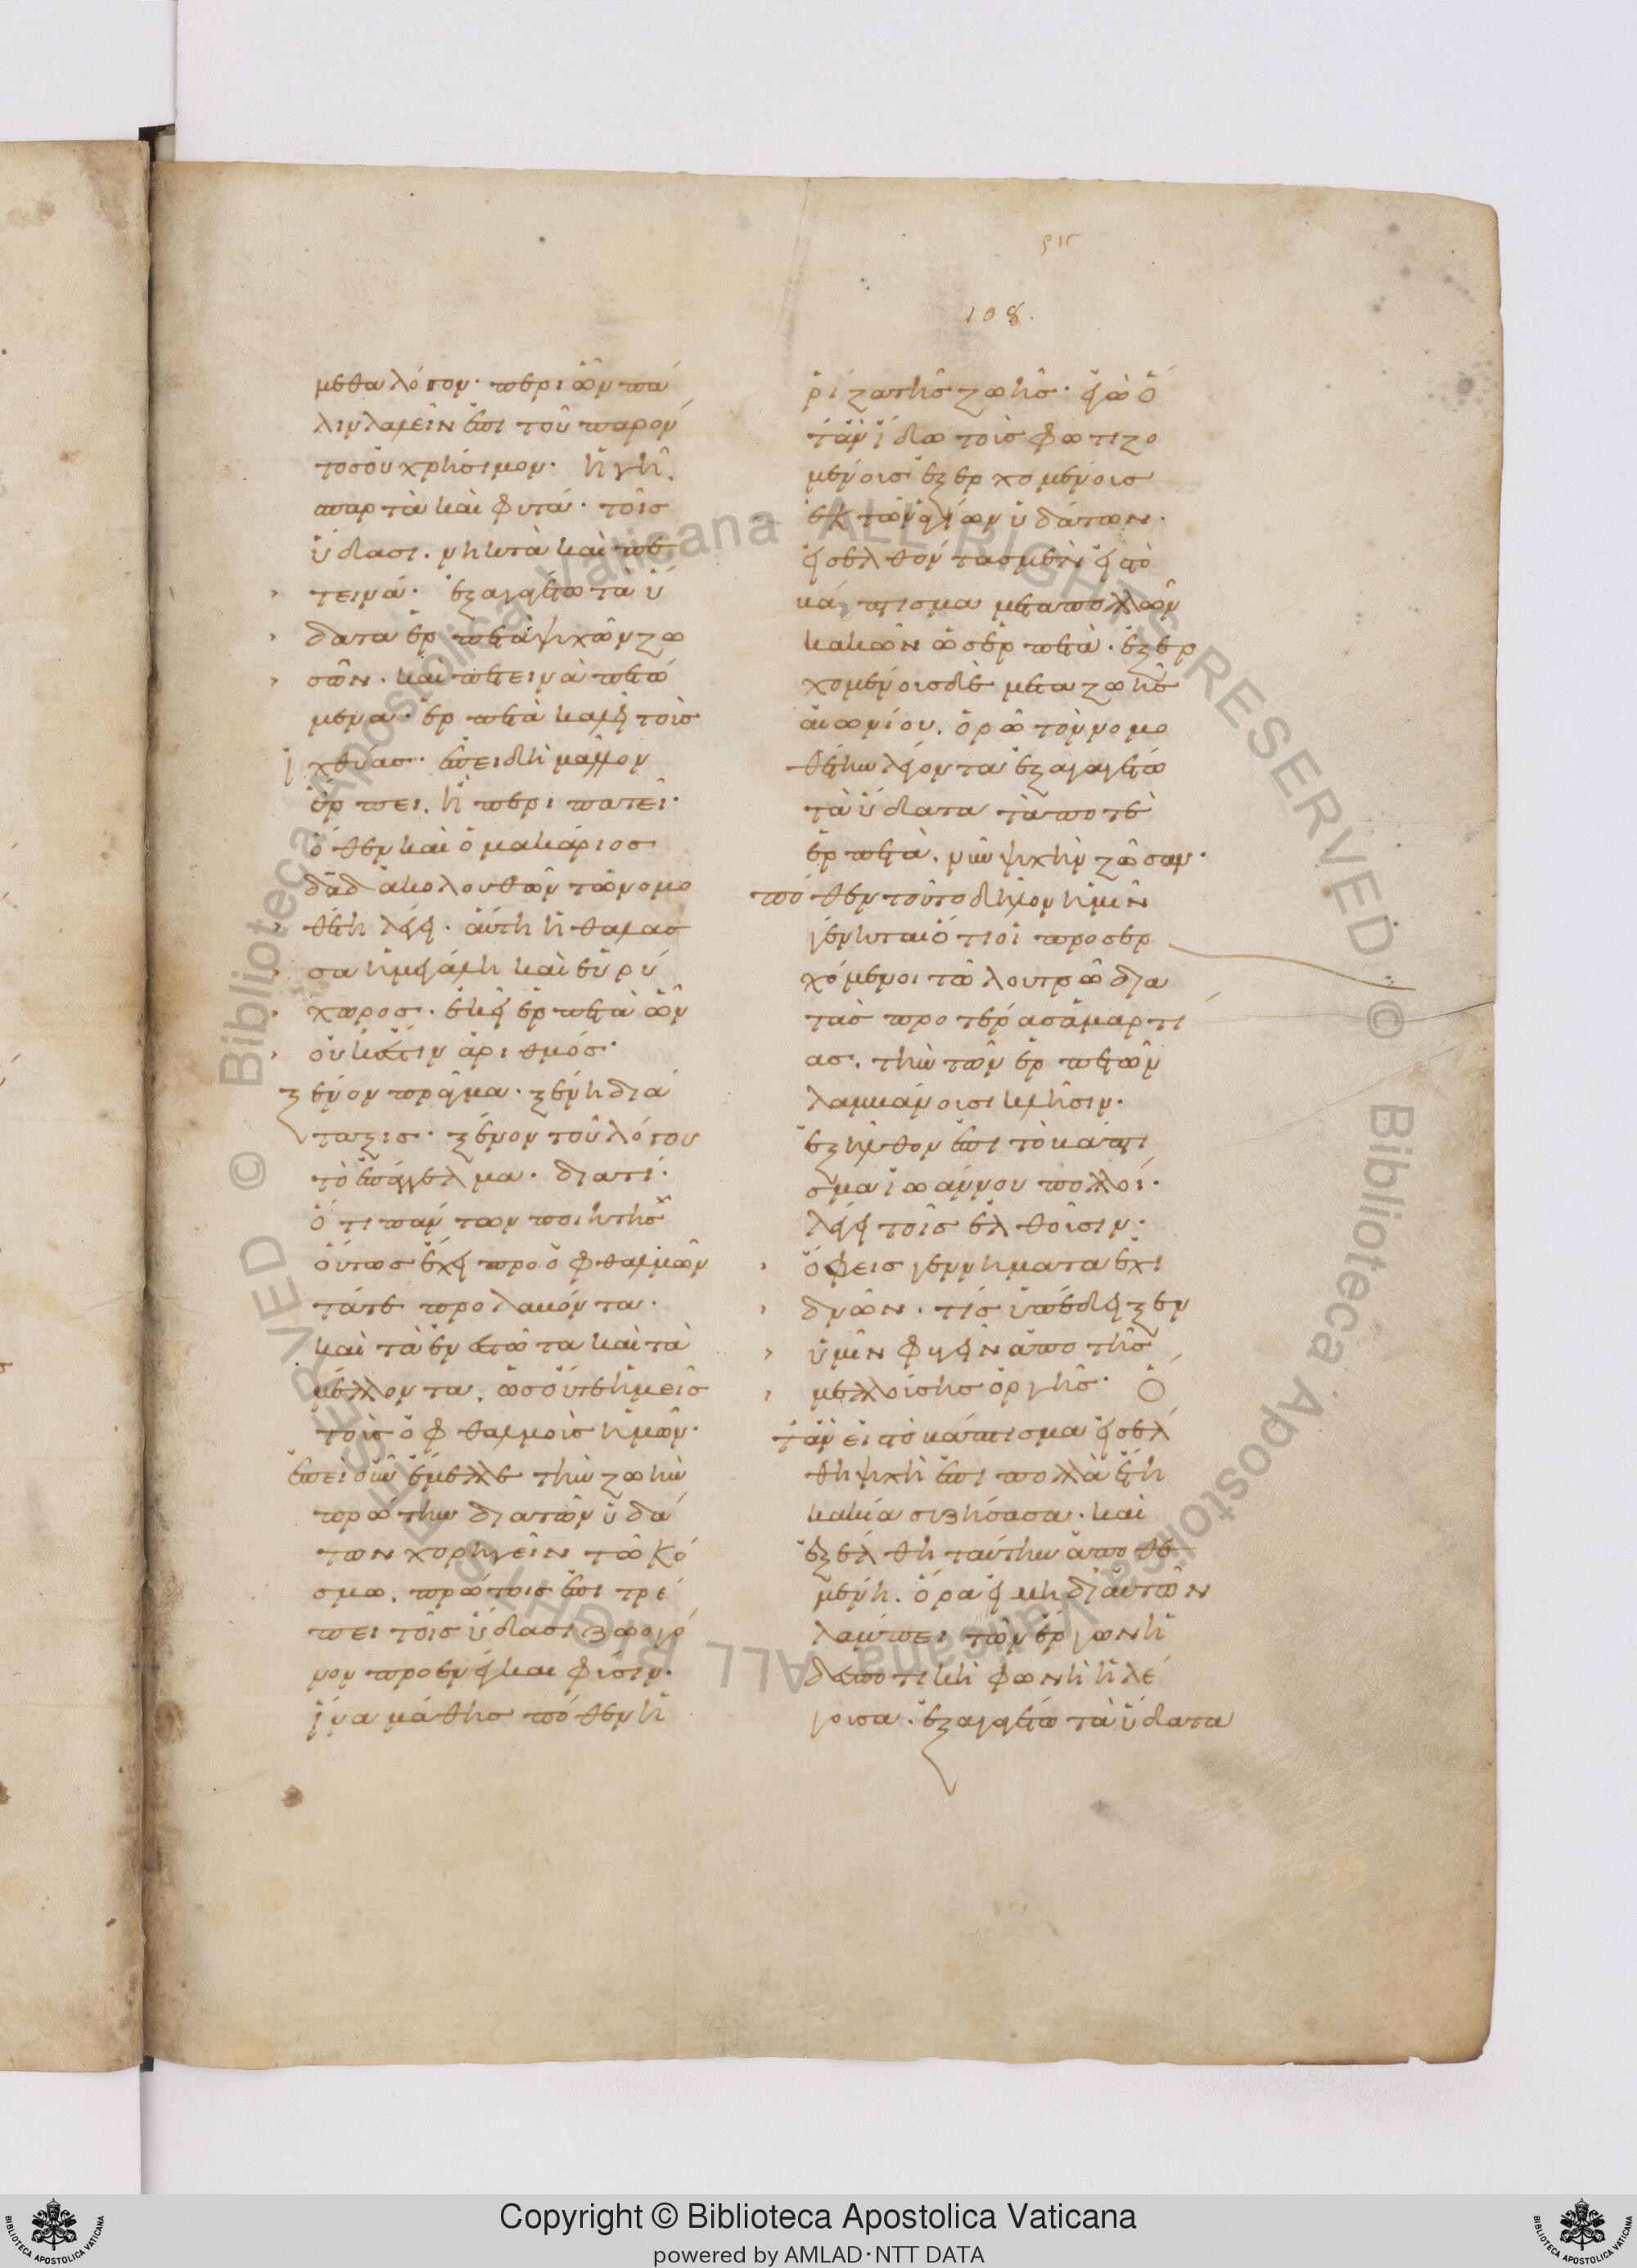 ριε
108.
μεθα λόγον· περὶ ὧν πά
λιν λαλεῖν ἐπὶ τοῦ παρόν
τος οὐ χρήσιμον· ἡ γῆ,
σπαρτὰ καὶ φυτά· τοῖς
ὕδασι, νηκτὰ καὶ πε
τεινά· ἐξαγαγέτω τὰ ὕ
δατα ἑρπετὰ ψυχῶν ζω
σῶν. καὶ πετεινὰ πετό
μενα· ἑρπετὰ καλεῖ τοὺς
ἰχθύας· ἐπειδὴ μᾶλλον
ἕρπει, ἢ περιπατεῖ·
ὅθεν καὶ ὁ μακάριος
δαδ ἀκολουθῶν τῷ νομο
θέτῃ λέγει· αὕτη ἡ θάλασ
σα ἡ μεγάλη καὶ εὐρύ
χωρος· ἐκεῖ ἑρπετὰ ὧν
οὐκ ἔστιν ἀριθμός·
ξένον πρᾶγμα· ξένη διά
ταξις· ξένον τοῦ λόγου
τὸ ἐπάγγελμα· διατί·
ὅτι πάντων ποιητὴς
οὕτως ἔχει πρὸ ὀφθαλμῶν
τά τε προλαβόντα·
καὶ τὰ ἐνεστῶτα καὶ τὰ
μέλλοντα, ὡς οὔτε ἡμεῖς
τοὺς ὀφθαλμοὺς ἡμῶν·
ἐπεὶ οὖν ἔμελλε τὴν ζωὴν
πρώτην διὰ τῶν ὑδά
των χορηγεῖν τῷ κό
σμω, πρώτοις ἐπιτρέ
πει τοῖς ὕδασι ζωογό
νον προενεῖκαι φύσιν·
ἵνα μάθῃς πόθεν ἡ
ῥίζα τῆς ζωῆς· ἐγὼ ὅ
τὰν ἴδω τοὺς φωτιζο
μένους ἐξερχομένους
ἐκ τῶν ἁγίων ὑδάτων·
εἰσελθόντας μὲν εἰς τὸ
βάπτισμα μετὰ πολλῶν
κακῶν ὡς ἑρπετὰ· ἐξερ
χομένους δὲ μετὰ ζωῆς
αἰωνίου, ὁρῶ τὸν νομο
θέτην λέγοντα ἐξαγαγέτω
τὰ ὕδατα τὰ ποτὲ
ἑρπετὰ, νῦν ψυχὴν ζῶσαν·
πόθεν τοῦτο δῆλον ἡμῖν
γένηται ὅτι οἱ προσερ
χόμενοι τῷ λουτρῷ διὰ
τὰς προτέρας ἁμαρτί
ας, τὴν τῶν ἑρπετῶν
λαμβάνουσι κλῆσιν·
ἐξῆλθον ἐπὶ τὸ βάπτι
σμα ἰωάννου πολλοί·
λέγει τοῖς ἐλθοῦσιν·
ὄφεις γεννήματα ἐχι
δνῶν· τίς ὑπέδειξεν
ὑμῖν φυγεῖν ἀπὸ τῆς
μελλούσης ὀργῆς· Ὅ
τὰν εἰς τὸ βάπτισμα εἰσέλ
θῃ ψυχὴ ἐπὶ πολλὰ ἔτη
κακία συζήσασα· καὶ
ἐξέλθῃ ταύτην ἀποθε
μένη, ὅρα εἰ μὴ δι αὐτῶν
λάμπει τῶν ἔργων ἡ
δεσποτικὴ φωνὴ ἡ λέ
γουσα· ἐξαγαγέτω τὰ ὕδατα
Copyright © Biblioteca Apostolica Vaticana
powered by AMLAD·NTT DATA